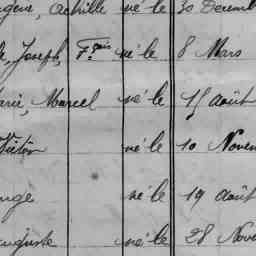 Achille né le 30 Décemb
Joseph, Fçois né le 8 Mars
Marcel né le 15 août
Victor né le 10 Novem
né le 19 août
Auguste né le 28 Nove